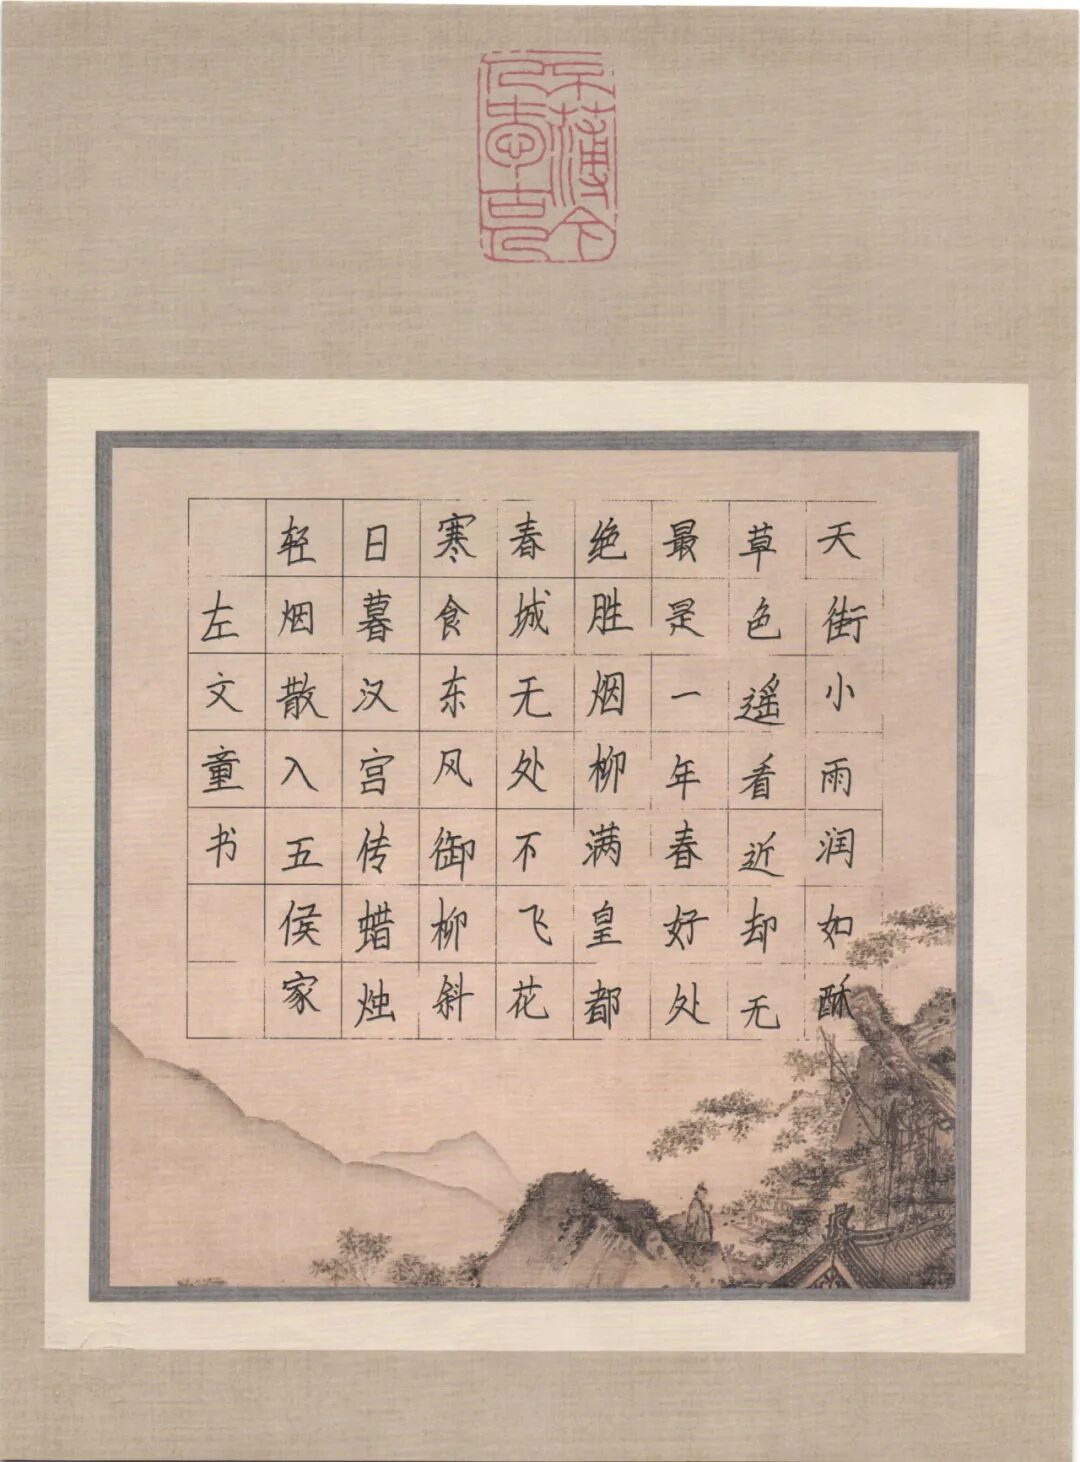 天街小雨润如酥
草色遥看近却无
最是一年春好处
绝胜烟柳满皇都
春城无处不飞花
寒食东风御柳斜
日暮汉宫传蜡烛
轻烟散入五侯家
左文童书